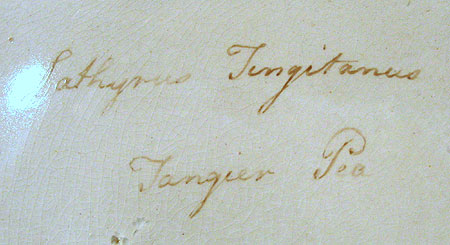 Lathyrus Tingitanus
Tangier Pea